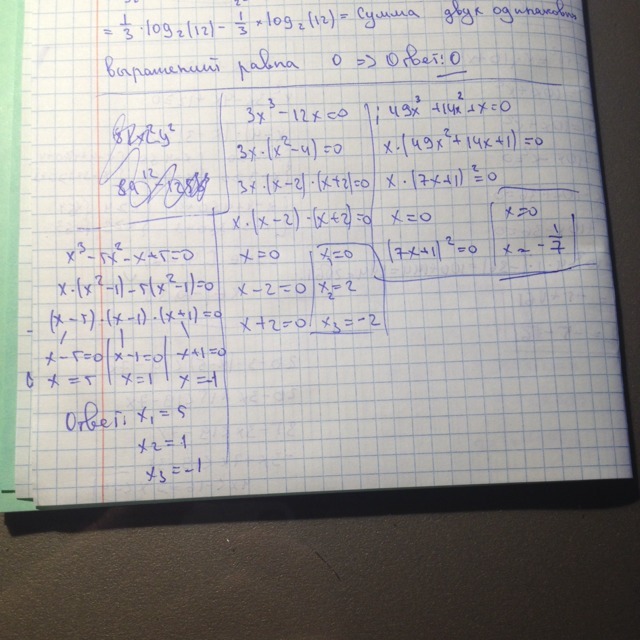 = 1/3 · log₂(12) − 1/3 × log₂(12) = Сумма двух одинаковых
выражений равна 0 => Ответ: 0
3x³ − 12x = 0
3x · (x² − 4) = 0
3x · (x − 2) · (x + 2) = 0
x · (x − 2) · (x + 2) = 0
x = 0
x − 2 = 0
x + 2 = 0
x₁ = 0
x₂ = 2
x₃ = −2
49x³ + 14x² + x = 0
x · (49x² + 14x + 1) = 0
x · (7x + 1)² = 0
x = 0
(7x + 1)² = 0
x = 0
x = − 1/7
x³ − 5x² − x + 5 = 0
x · (x² − 1) − 5(x² − 1) = 0
(x − 5) · (x − 1) · (x + 1) = 0
x − 5 = 0 | x − 1 = 0 | x + 1 = 0
x = 5 | x = 1 | x = −1
Ответ: x₁ = 5
x₂ = 1
x₃ = −1